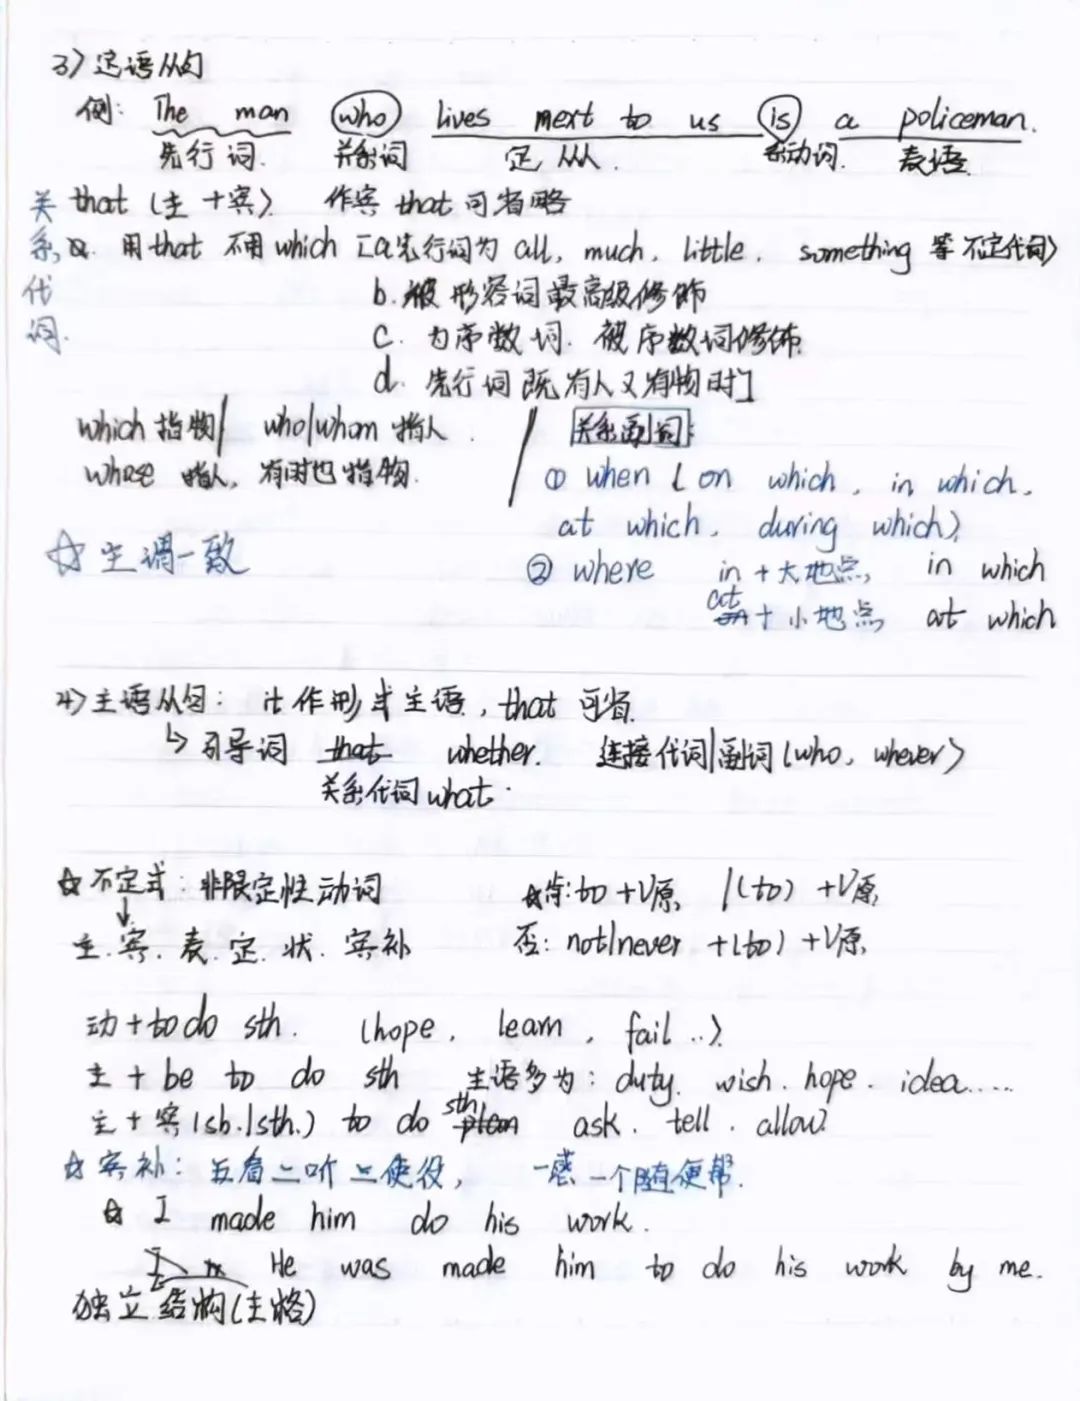 3) 定语从句
例: The man who lives next to us is a policeman.
先行词. 关系词 定从 系动词. 表语
关系代词.
that (主+宾) 作宾 that 可省略
用that 不用which [a.先行词为 all, much, little, something 等不定代词)
b. 被形容词最高级修饰
c. 为序数词. 被序数词修饰.
d. 先行词既有人又有物时]
which 指物/ who/whom 指人.
whose 指人, 有时也指物.
关系副词:
① when ( on which, in which,
at which, during which)
② where in + 大地点, in which
at + 小地点, at which
☆ 主谓一致
4) 主语从句: it 作形式主语, that 可省
↳ 引导词 that whether. 连接代词/副词 (who, whever)
关系代词 what.
☆ 不定式: 非限定性动词
↓
主. 宾. 表. 定. 状. 宾补
☆肯: to +V原, /(to) +V原,
否: not/never +(to) +V原,
动+to do sth. (hope, learn, fail...)
主 + be to do sth 主语多为: duty. wish. hope. idea.....
主 + 宾(sb./sth.) to do sth ask. tell. allow
☆ 宾补: 五看二听三使役, 一感一个随便帮.
☆ I made him do his work.
He was made him to do his work by me.
独立结构(主格)